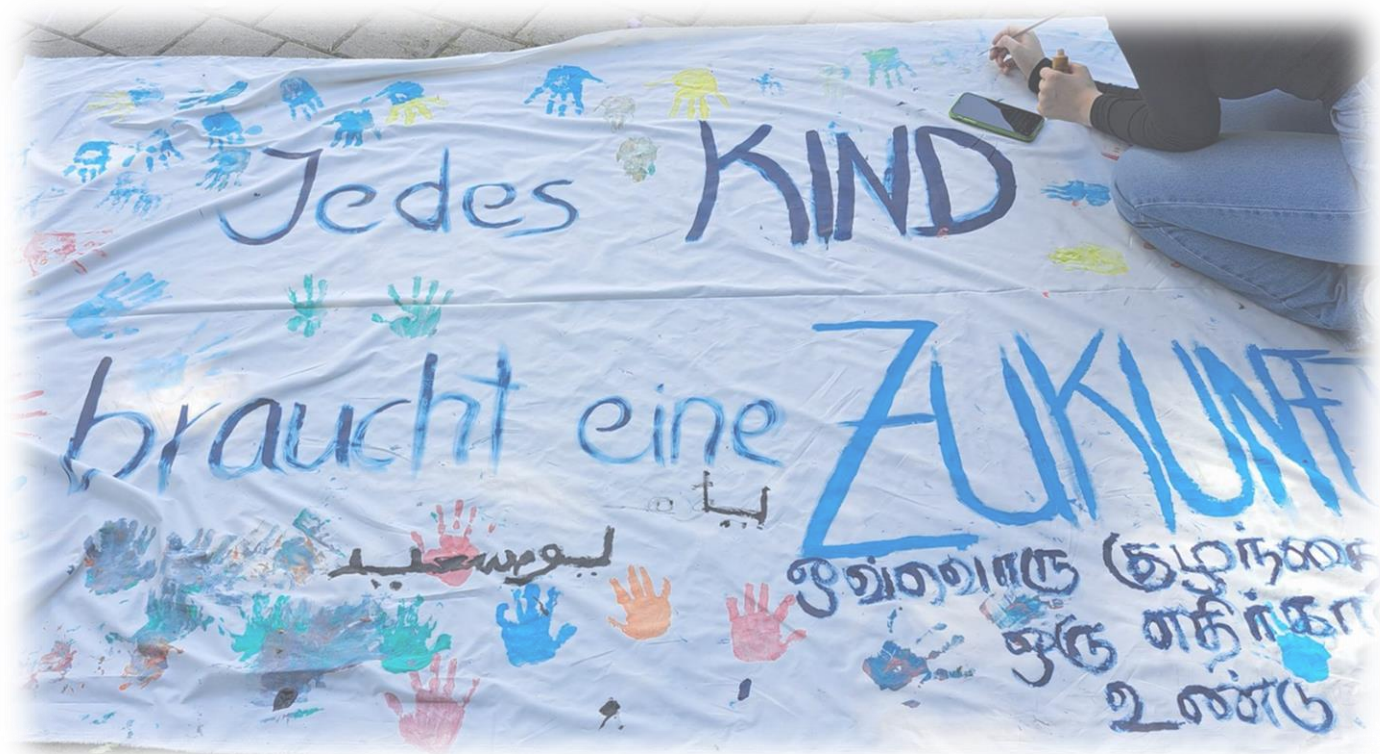 Jedes KIND
braucht eine ZUKUNF
يا
ஒவ்வொரு குழந்தை
ஒரு எதிர்கா
உண்டு